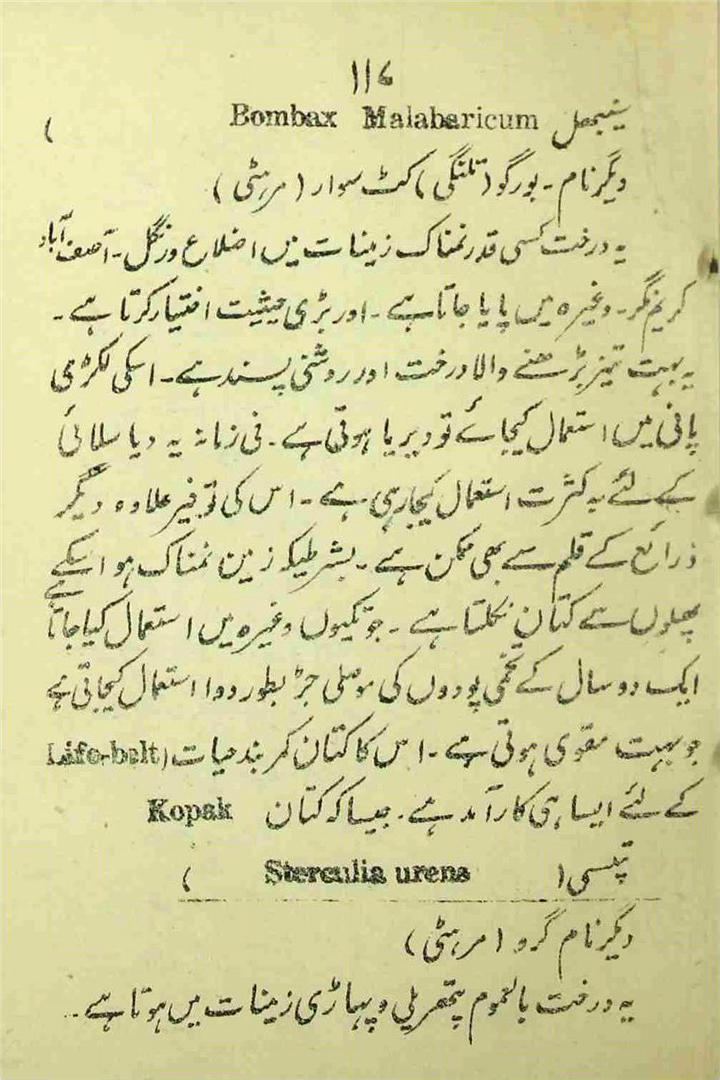 ۱۱۷
سینبھل Bombax Malabaricum (
دیگر نام ۔ بورگو (تلنگی) کٹ سوار (مرہٹی)
یہ درخت کسی قدر نمناک زمینات میں اضلاع ورنگل ۔ آصف آباد
کریم نگر ۔ وغیرہ میں پایا جاتا ہے ۔ اور بڑی حیثیت اختیار کرتا ہے ۔
یہ بہت تیز بڑھنے والا درخت اور روشنی پسند ہے ۔ اسکی لکڑی
پانی میں استعمال کیجائے تو دیرپا ہوتی ہے ۔ فی زمانہ یہ دیا سلائی
کے لئے بہ کثرت استعمال کیجارہی ہے ۔ اس کی توفیر علاوہ دیگر
ذرائع کے قلم سے بھی ممکن ہے ۔ بشرطیکہ زمین نمناک ہو اسکے
پھلوں سے کتان نکلتا ہے ۔ جو تکیوں وغیرہ میں استعمال کیا جاتا
ایک دو سال کے تخمی پودوں کی موصلی جڑ بطور دوا استعمال کیجاتی ہے
جو بہت مقوی ہوتی ہے ۔ اس کا کتان کمر بند حیات (Life-belt
کے لئے ایسا ہی کارآمد ہے ۔ جیسا کہ کتان Kopak
تپسی ( Sterculia urens )
دیگر نام گرو (مرہٹی)
یہ درخت بالعموم پتھریلی و پہاڑی زمینات میں ہوتا ہے ۔